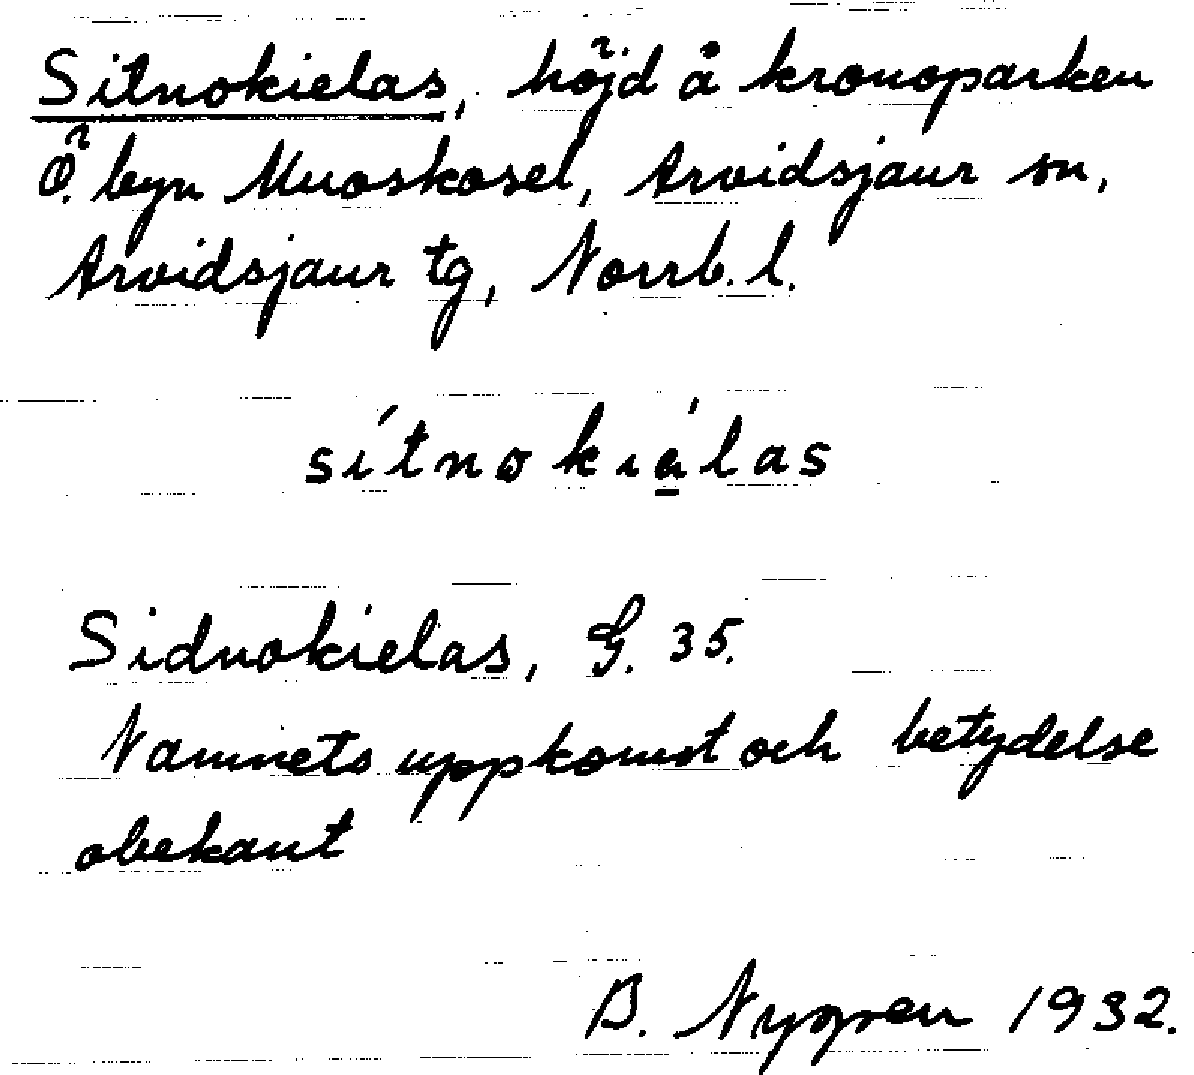 Sitnokielas, höjd å kronoparken
Ö. byn Muoskosel, Arvidsjaur sn,
Arvidsjaur tg, Norrb. l.
sítnokıa̱ ́las
Sidnokielas, G. 35.
Namnets uppkomst och betydelse
obekant
B. Nygren 1932.